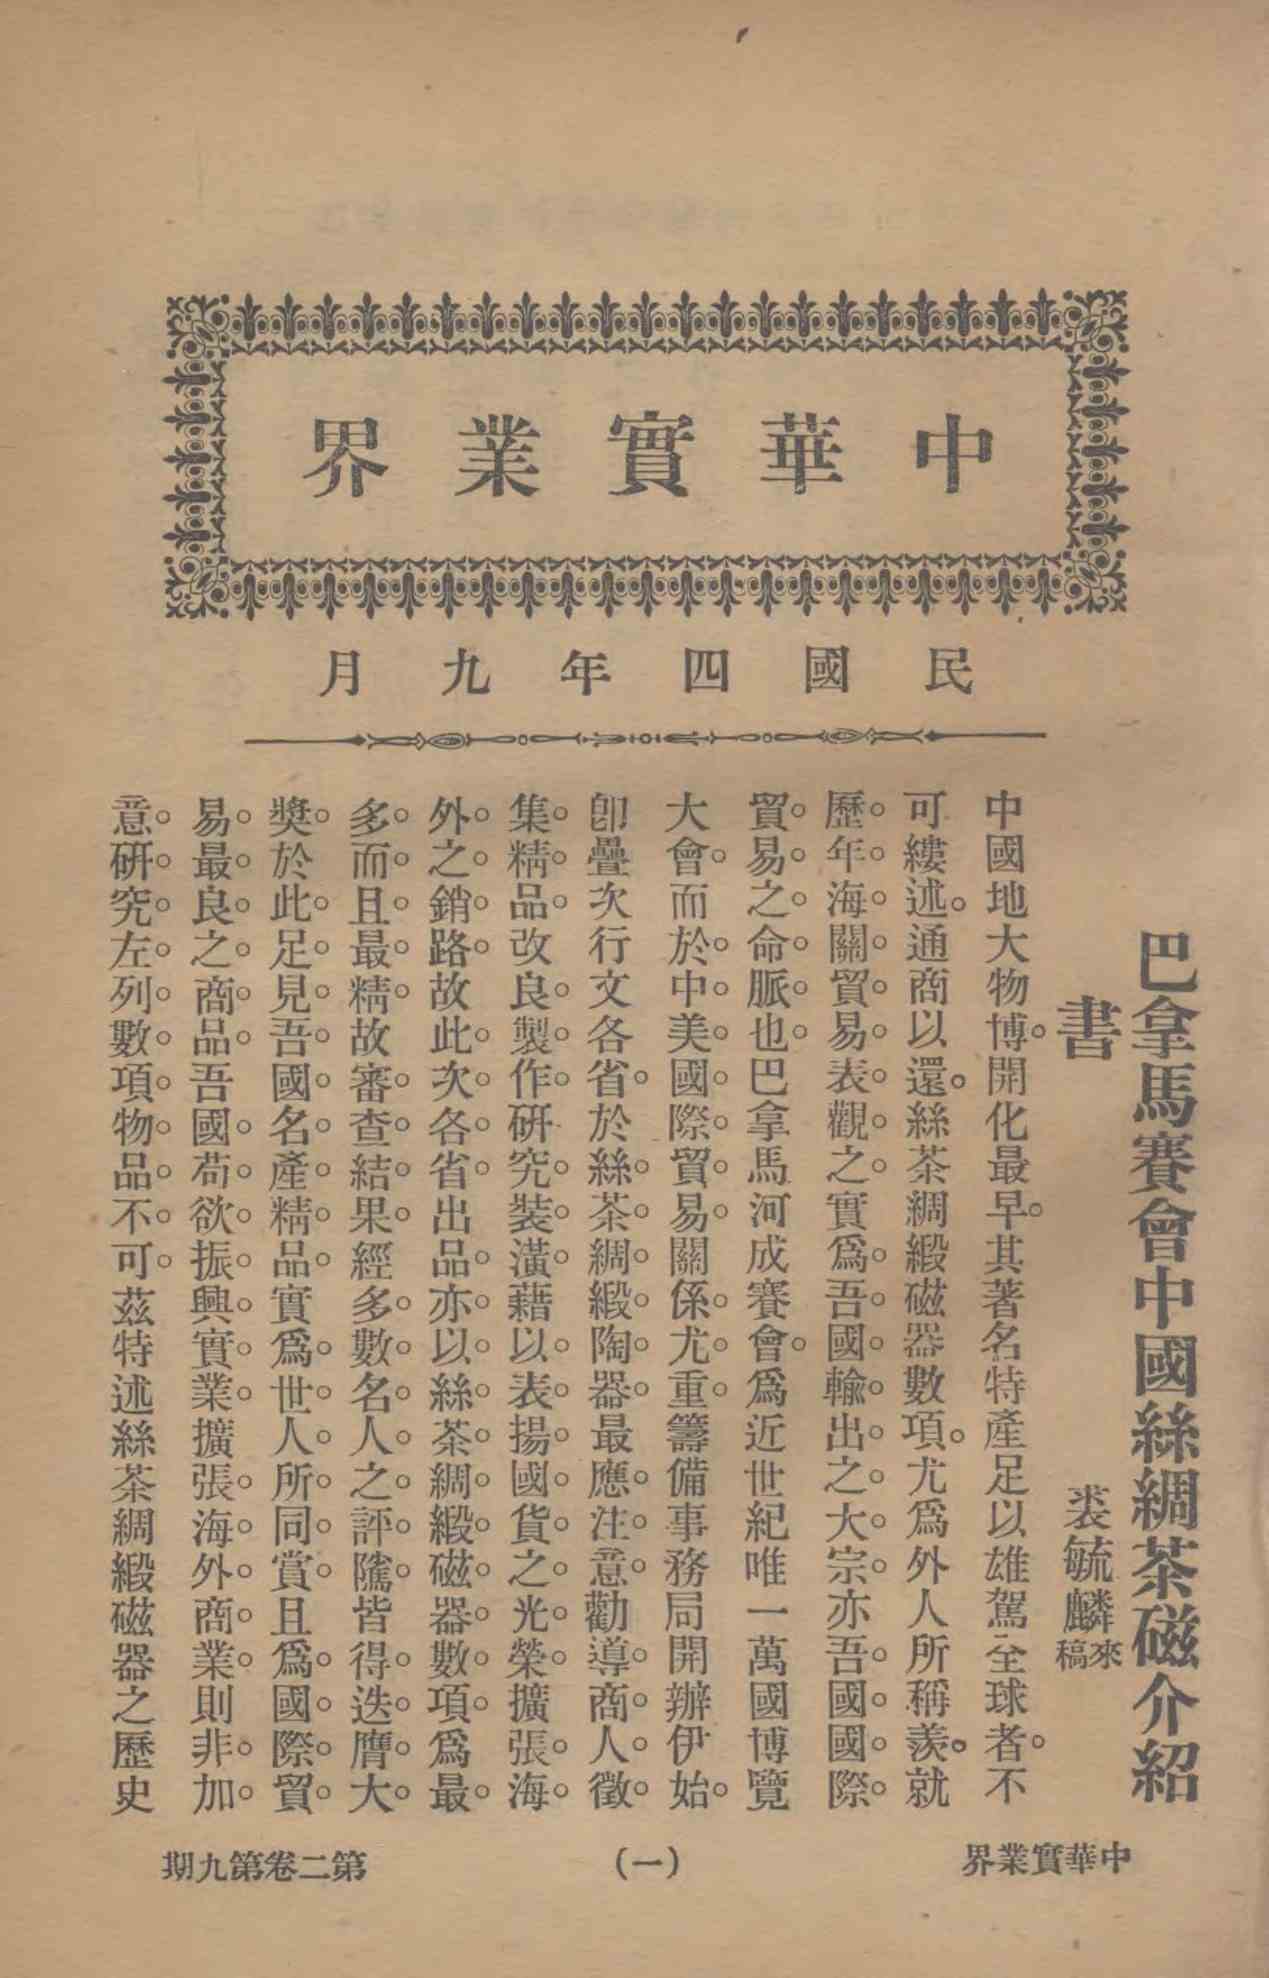 中華實業界
民國四年九月
巴拿馬賽會中國絲綢茶磁介紹
書
裘毓麟來稿
中國地大物博。開化最早。其著名特產足以雄駕全球者。不
可縷述。通商以還。絲茶綢緞磁器數項。尤爲外人所稱羨。就
歷年海關貿易表觀之實爲吾國輸出之大宗亦吾國國際
貿易之命脈也巴拿馬河成賽會爲近世紀唯一萬國博覽
大會而於中美國際貿易關係尤重籌備事務局開辦伊始
卽疊次行文各省於絲茶綢緞陶器最應注意勸導商人徵
集精品改良製作硏究裝潢藉以表揚國貨之光榮擴張海
外之銷路故此次各省出品亦以絲茶綢緞磁器數項爲最
多而且最精故審查結果經多數名人之評隲皆得迭膺大
獎於此足見吾國名產精品實爲世人所同賞且爲國際貿
易最良之商品吾國苟欲振興實業擴張海外商業則非加
意硏究左列數項物品不可茲特述絲茶綢緞磁器之歷史
中華實業界
(一)
第二卷第九期